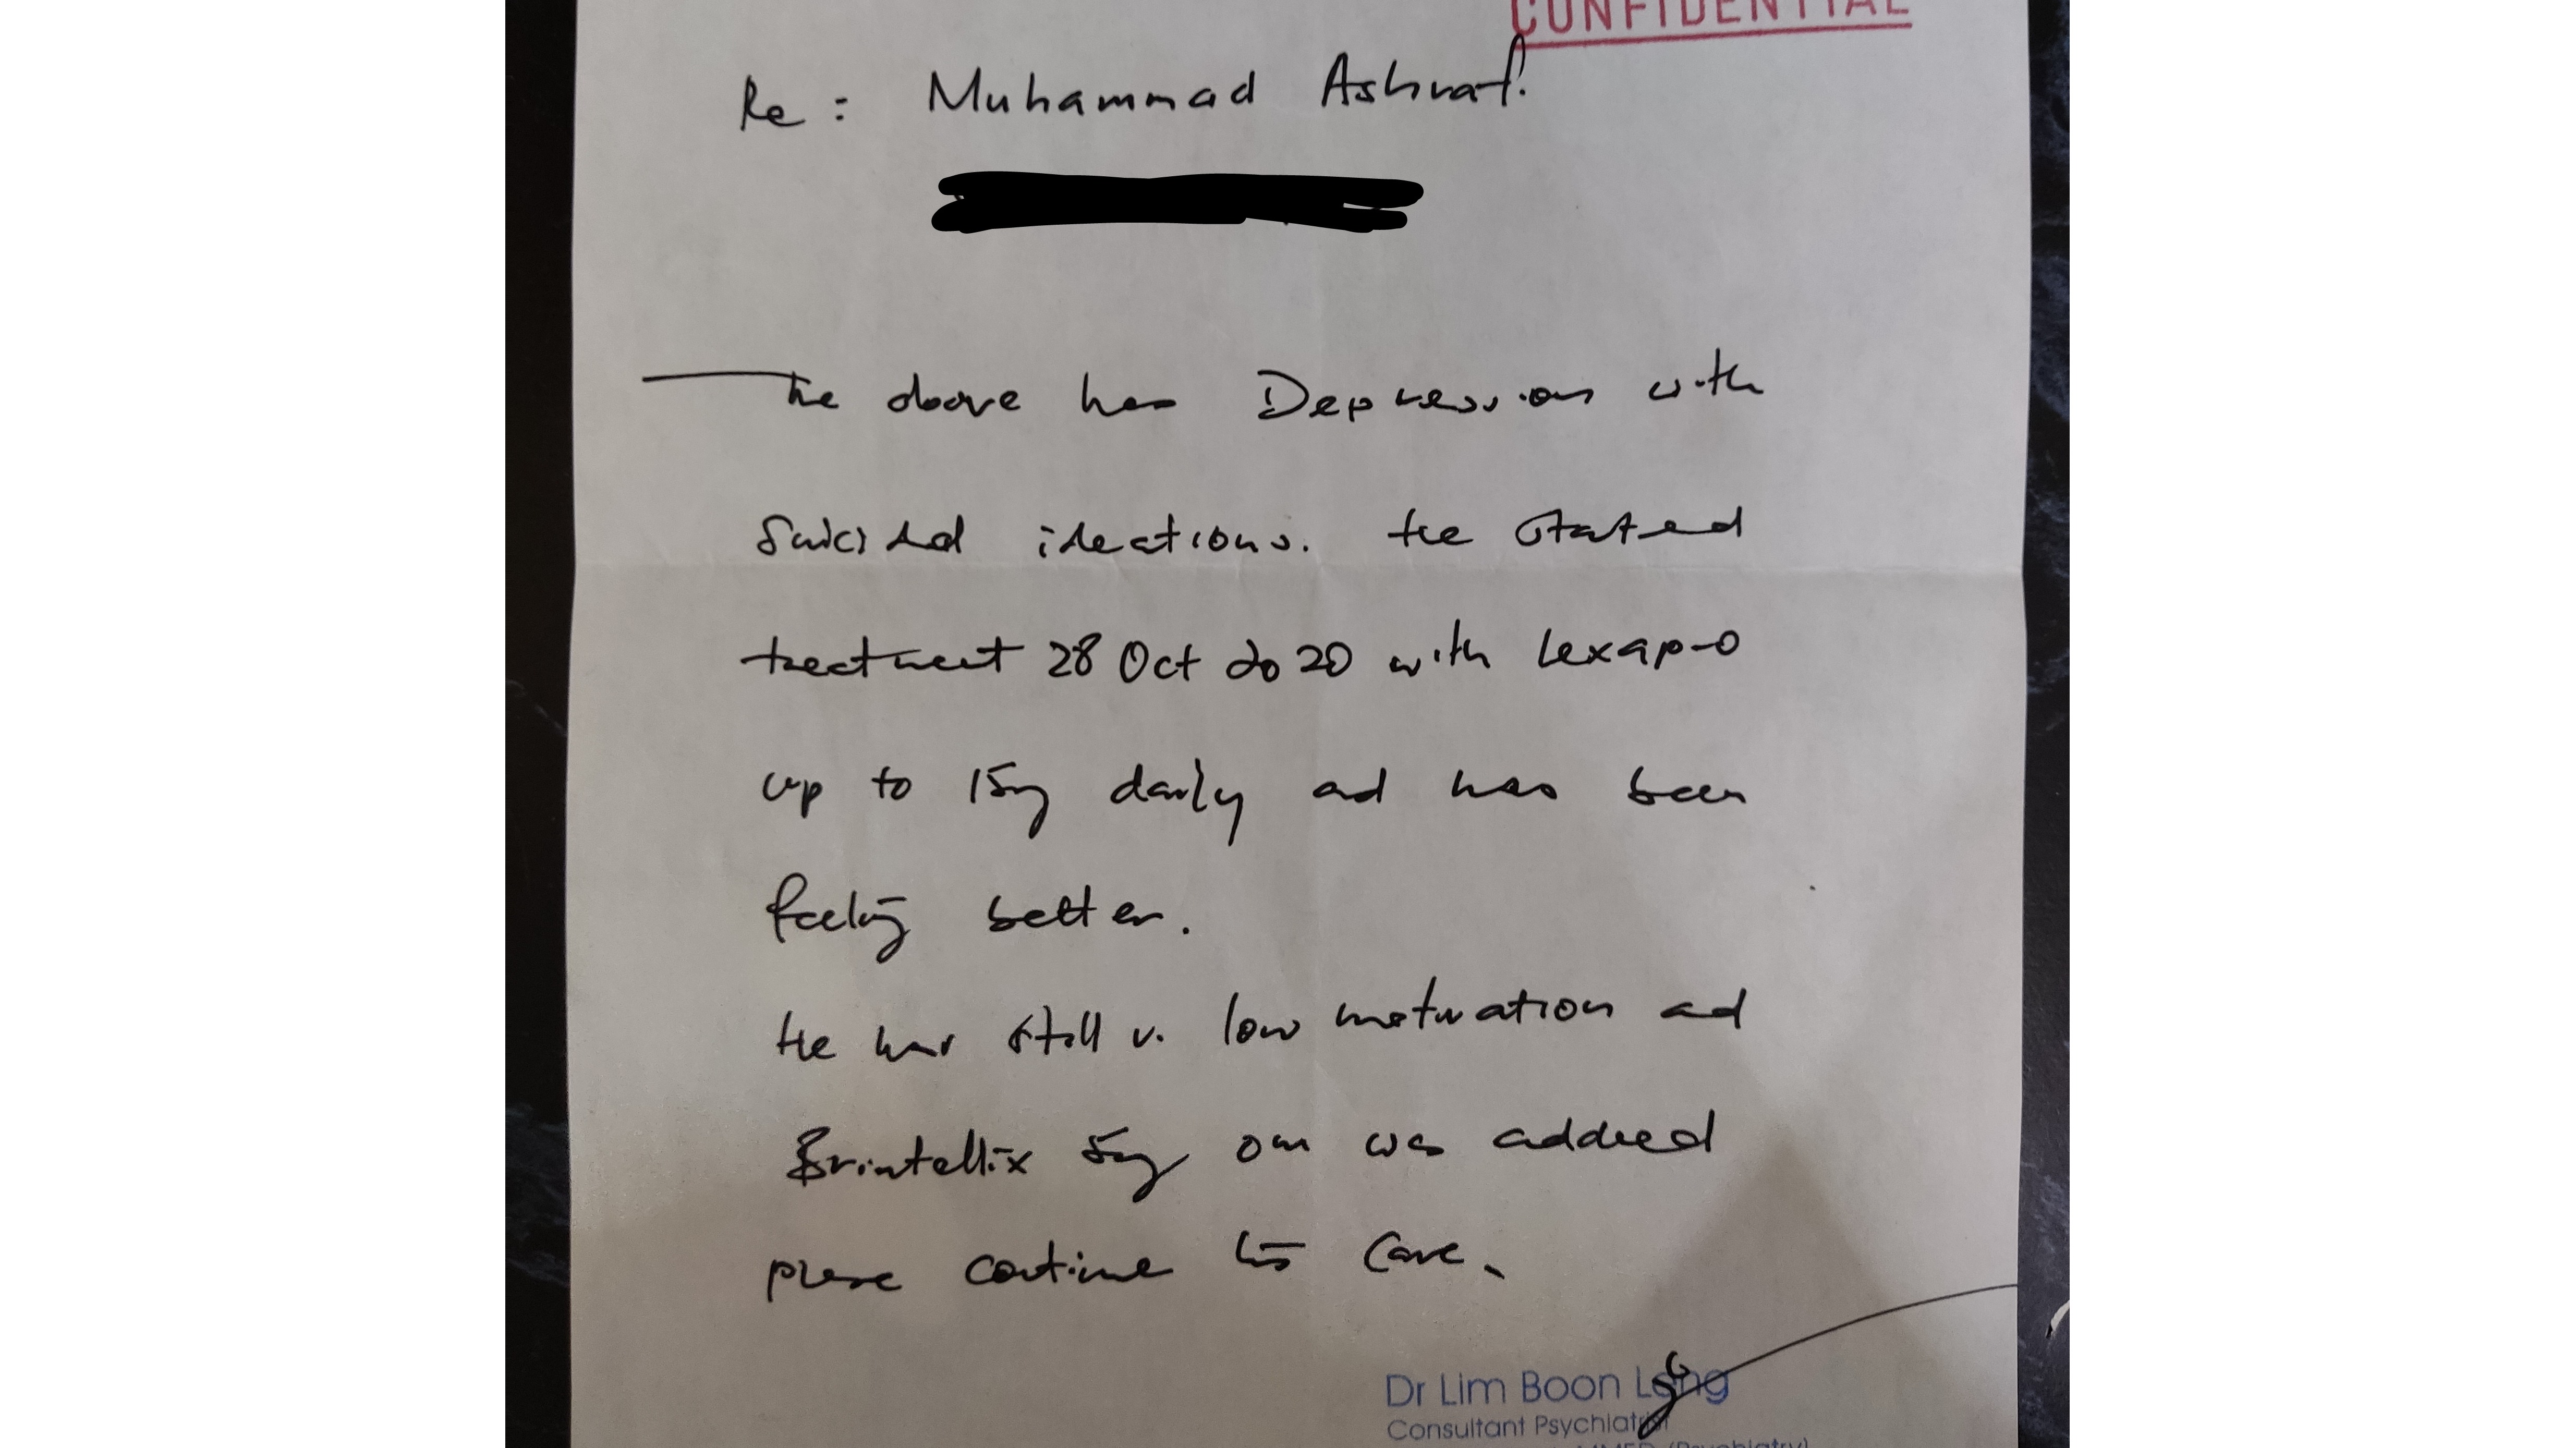 CONFIDENTIAL
Re : Muhammad Ashraf.
The above has Depression with
Suicidal ideations. He started
treatment 28 Oct 2020 with Lexapro
up to 15mg daily and has been
feeling better.
He has still v. low motivation and
Brintellix 5mg om was added
please continue his care.
Dr Lim Boon Leng
Consultant Psychiatrist
(Psychiatry)